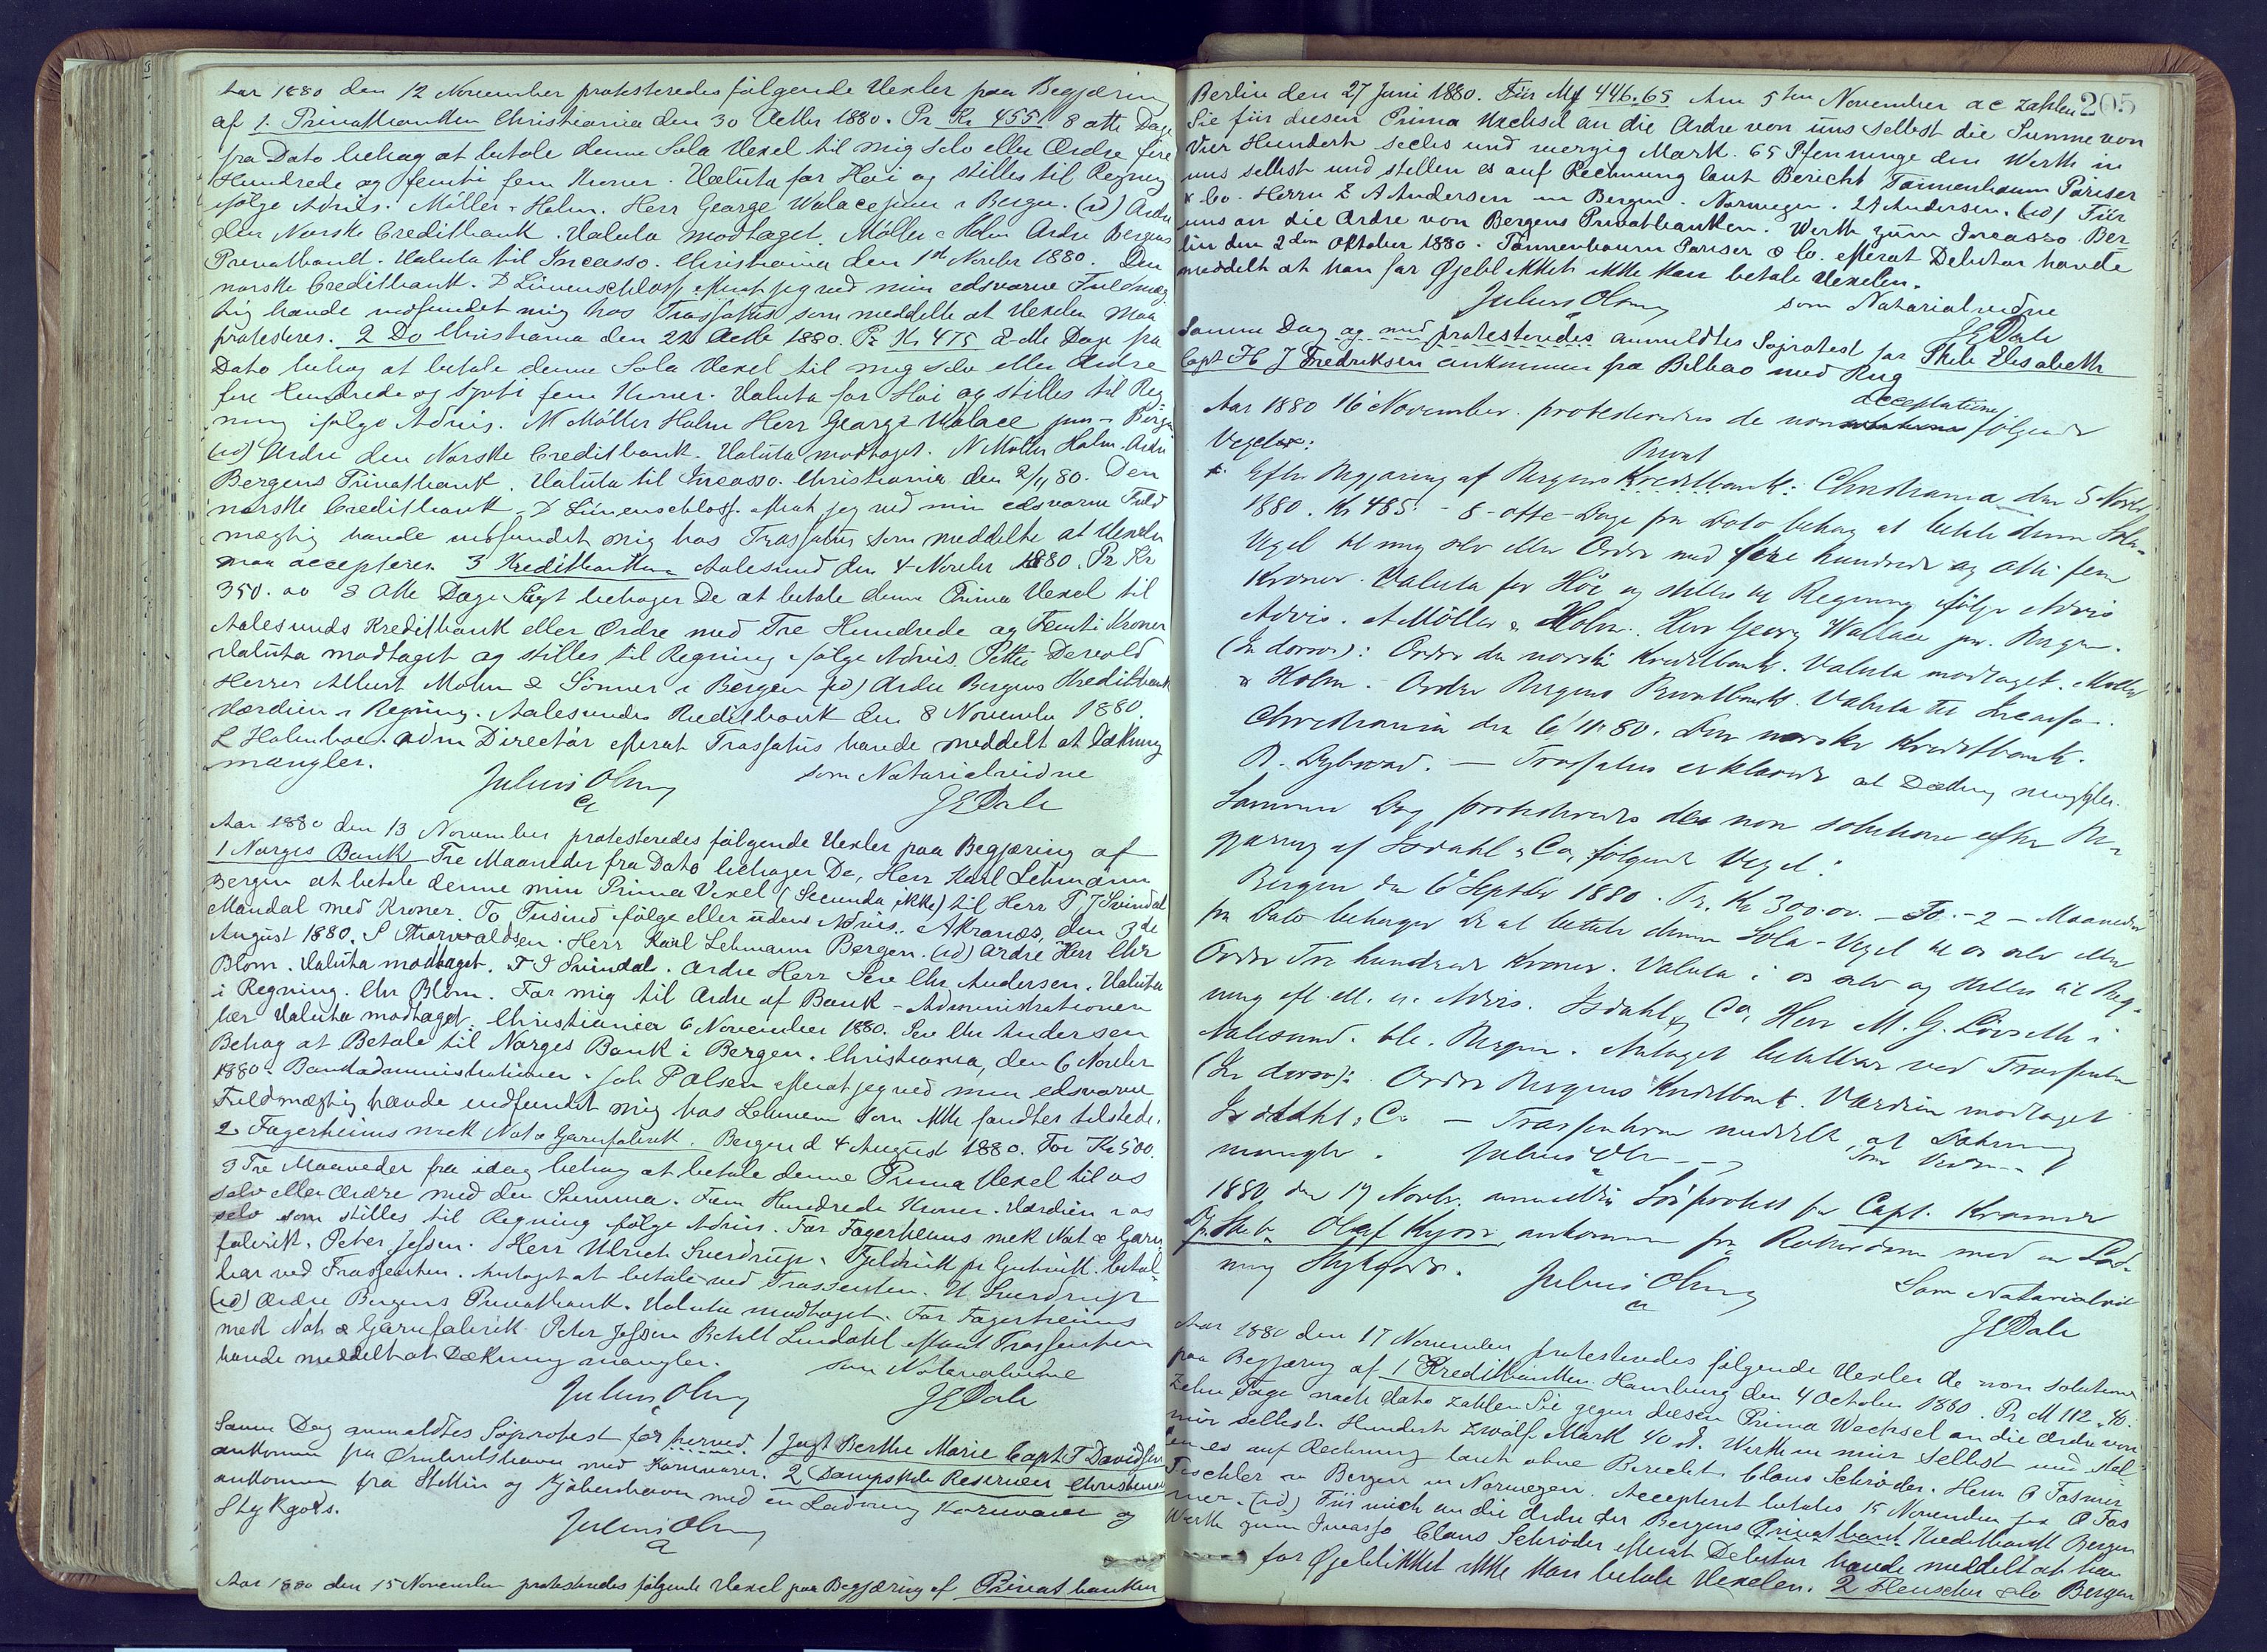 Aar 1880 den 12 November protesteredes følgende Vexler paa Begjæring
af 1. Privatbanken Christiania den 30 Octbr 1880. Pr Kr 455 8 otte Dage
fra Dato behag at betale denne Sola Vexel til mig selv eller Ordre fire
Hundrede og femti fem Kroner. Valuta for Høi og stilles til Regning
ifølge Advis. Møller & Holm. Herr George Walace jun i Bergen. (id) Ordre
den Norske Creditbank. Valuta modtaget. Møller & Holm Ordre Bergens
Privatbank. Valuta til Incasso. Christiania den 1st Novbr 1880. Den
norske Creditbank. D Lünenschloss efterat jeg ved min edsvorne Fuldmæg
tig havde indfundet mig hos Trassatus som meddelte at Vexelen maa
protesteres. 2 Do Christiania den 22 Octb 1880. Pr Kr 475 8 otte Dage fra
Dato behag at betale denne Sola Vexel til mig selv eller Ordre
fire Hundrede og sytti fem Kroner. Valuta for Høi og stilles til Reg
ning ifølge Advis. N Møller Holm Herr George Walace jun i Bergen
(id) Ordre den Norske Creditbank. Valuta modtaget. N Møller Holm. Ordre
Bergens Privatbank. Valuta til Incasso. Christiania den 2/11 80. Den
norske Creditbank. D Lünenschloss. efterat jeg ved min edsvorne Fuld
mægtig havde indfundet mig hos Trassatus som meddelte at Vexelen
maa accepteres. 3 Kreditbanken Aalesund den 4 Novbr 1880. Pr Kr
350.00 8 Otte Dage Sigt behager De at betale denne Prima Vexel til
Aalesunds Kreditbank eller Ordre med Tre Hundrede og Femti Kroner
Valuta modtaget og stilles til Regning ifølge Advis. Petter Devold
Herrer Albert Mohn & Sönner i Bergen (id) Ordre Bergens Kreditbank
Værdien i Regning. Aalesunds Kreditbank den 8 November 1880.
L Holmboe. adm Directør efterat Trassatus havde meddelt at Dækning
mangler.
Julius Olsen som Notarialvidne
JEDale
Aar 1880 den 13 November protesteredes følgende Vexler paa Begjæring af
1 Norges Bank Tre Maaneder fra Dato behager De, Herr Karl Lehmann
Bergen at betale denne min Prima Vexel (Secunda ikke) til Herr T J Svindal
Mandal med Kroner. To Tusind ifølge eller uden Advis. Akranæs, den 3de
August 1880. S Thorvaldsen. Herr Karl Lehmann Bergen. (id) Ordre Herr Chr
Blom. Valuta modtaget. T J Svindal. Ordre Herr Sev Chr Andersen. Valuta
i Regning. Chr Blom. For mig til Ordre af Bank-Administrationen
her Valuta modtaget. Christiania 6 November 1880. Sev Chr Andersen
Behag at Betale til Norges Bank i Bergen. Christiania, den 6 Novbr
1880. Bankadministrationen. Joh Polsen efterat jeg ved min edsvorne
Fuldmægtig havde indfundet mig hos Lehmann som ikke fandtes tilstede.
2 Fagerheims mek Not & Garnfabrik. Bergen d 4 August 1880. For Kr 500.
3 Tre Maaneder fra idag behag at betale denne Prima Vexel til os
selv eller Ordre med den Summa. Fem Hundrede Kroner. Værdien i os
selv som stilles til Regning ifølge Advis. For Fagerheims mek Not & Garn
fabrik. Peter Jessen. Herr Ulrich Sverdrup. betal
bar ved Trassenten. Antaget at betale ved Trassenten. U Sverdrup
(id) Ordre Bergens Privatbank. Valuta modtaget. For Fagerheims
mek Not & Garnfabrik Peter Jessen Bertil Lindahl efterat Trassenten
havde meddelt at Dækning mangler. som Notarialvidne
Julius Olsen JEDale
Samme Dag anmeldtes Søprotest for herved. 1 Jagt Berthe Marie Capt T Davidsen
ankommen fra med Kornvarer. 2 Dampskib Reserven Christensen
ankommen fra Stettin og Kjøbenhavn med en Ladning Kornvarer og
Stykgods.
Julius Olsen
Aar 1880 den 15 November protesteredes følgende Vexel paa Begjæring af Privatbanken
205
Berlin den 27 Juni 1880. Für Mk 446.65 Am 5ten November ac zahlen
Sie für diesen Prima Wechsel an die Ordre von uns selbst die Summe von
Vier Hundert sechs und vierzig Mark. 65 Pfenninge den Werth in
uns selbst und stellen es auf Rechnung laut Bericht Tannenbaum Pariser
& Co. Herrn Z A Andersen in Bergen. Norwegen. Z A Andersen. (id) Für
uns an die Ordre von Bergens Privatbanken. Werth zum Incasso. Ber
lin den 2den Oktober 1880. Tannenbaum Pariser & Co. efterat Debitor havde
meddelt at han for Øjeblikket ikke kan betale Vexelen.
Julius Olsen som Notarialvidne
JEDale
Samme Dag og med protesteredes anmeldtes Søprotest for Skib Elisabeth
Capt H J Fredriksen ankommen fra Bilbao med Rug
acceptatione
Aar 1880 16 November. protesteredes de non følgende
Vexler:
Privat
Efter Begjæring af Bergens Kreditbank: Christiania den 5 Novbr
1880. Kr 485. - 8 - otte - Dage fra Dato behag at betale denne Sola-
Vexel til mig selv eller Ordre med fire hundrede og otti fem
Kroner. Valuta for Höi og stilles til Regning ifölge Advis
Advis. A Möller & Holm. Herr Georg Wallace jun. Bergen.
(In dorso): Ordre den norske Kreditbank. Valuta modtaget. Möller
& Holm. Ordre Bergens Privatbank. Valuta til Incasso.
Christiania den 6/11 80. Den norske Kreditbank.
R. Dybwad. — Trassatus erklærede at Dækning mangler.
Samme Dag protesteredes de non solutione efter Be-
gjæring af Isdahl & Co, følgende Vexel:
Bergen den 6 Septbr 1880. Pr. Kr 300.00. — To - 2 - Maaneder
fra Dato behager De at betale denne Sola-Vexel til os selv eller
Ordre Tre hundrede Kroner. Valuta i os selv og stilles til Reg-
ning eft. ell. u. Advis. Isdahl & Co, Herr M. G. Lövseth i
Aalesund. bb. Bergen. Antaget betalbar ved Trassenten
(In dorso): Ordre Bergens Kreditbank. Værdien modtaget
Isdahl & Co — Trassenten meddelte at Dækning
mangler. Julius Olsen som Vidne
1880 den 17 Novbr. anmeldtes Söprotest for Capt. Kramer
Dp. Skib Olaf Kyrre, ankommen fra Rotterdam med en Lad-
ning Stykgods. Julius Olsen Som Notarialvid
JEDale
Aar 1880 den 17 November protesteredes følgende Vexler de non solutione
paa Begjæring af 1 Kreditbanken. Hamburg den 4 October 1880. Pr M 112.40.
Zehn Tage nach dato zahlen Sie gegen diesen Prima Wechsel an die Ordre von
mir selbst. Hundert zwölf Mark 40 d. Werth in mir selbst und stel
len es auf Rechnung laut ohne Bericht. Claus Schröder. Herrn O Fasmer
Tischler in Bergen in Norwegen. Accepteret betales 15 November for O Fas
mer. (id) Für mich an die Ordre der Bergens Privatbank Kreditbank Bergen
Werth zum Incasso Claus Schröder efterat Debitor havde meddelt at han
for Øjeblikket ikke kan betale Vexelen. 2 Fleischer & Co Bergen